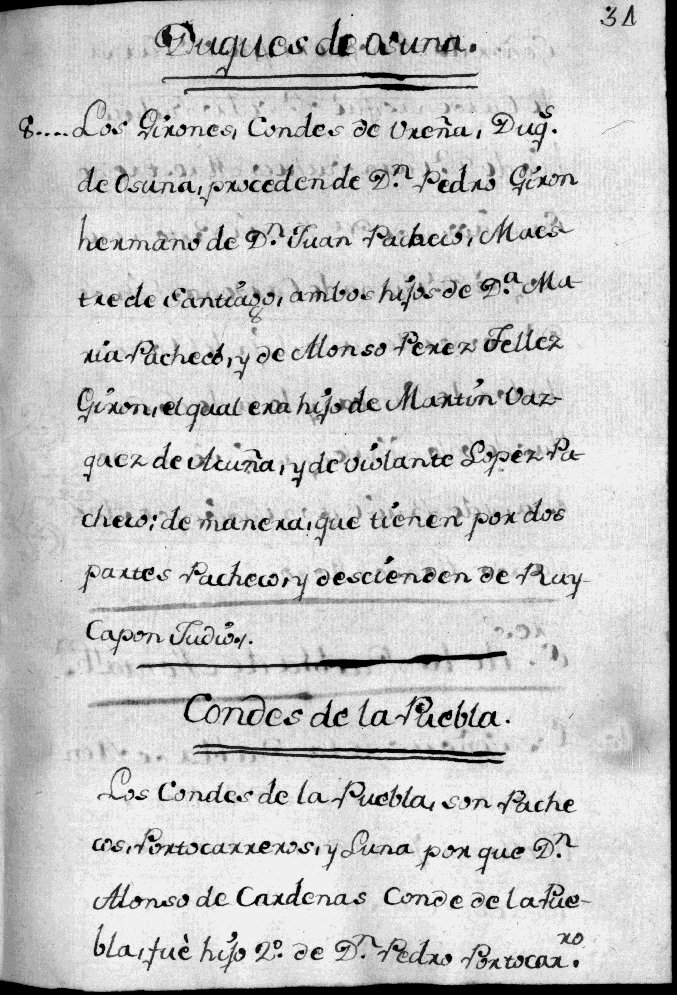 31
Duques de Osuna.
8.... Los Girones, Condes de Vreña, Duqs.
de Osuna, proceden de Dn. Pedro Giron
hermano de Dn. Juan Pacheco, Maes-
tre de Santiago, ambos hijos de Da. Ma-
ria Pacheco, y de Alonso Perez Tellez
Giron, el qual era hijo de Martin Vaz-
quez de Acuña, y de violante Lopez Pa-
checo; de manera, que tienen por dos
partes Pacheco, y descienden de Ruy-
Capon Judio.
Condes de la Puebla.
Los Condes de la Puebla, son Pache
cos, Portocarreros, y Luna por que Dn.
Alonso de Cardenas Conde de la Pue-
bla, fuè hijo 2o. de Dn. Pedro Portocarro.